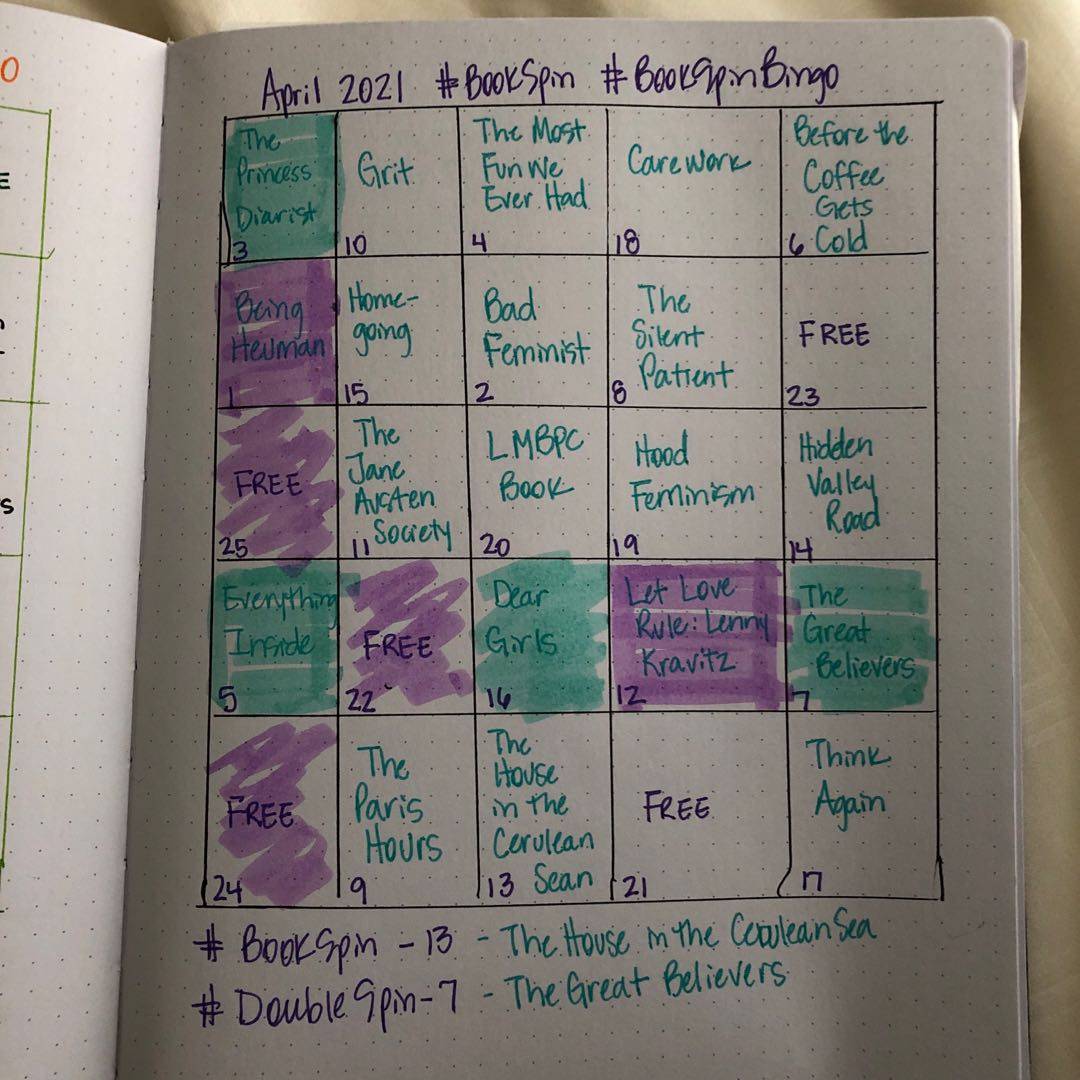 O
E
S
April 2021 #BookSpin #BookSpinBingo
The
Princess
Diarist
3
Grit
10
The Most
Fun We
Ever Had
4
Care Work
18
Before the
Coffee
Gets
Cold
6
Being
Heumann
1
Home-
going
15
Bad
Feminist
2
The
Silent
Patient
8
FREE
23
FREE
25
The
Jane
Austen
Society
11
LMBPC
Book
20
Hood
Feminism
19
Hidden
Valley
Road
14
Everything
Inside
5
FREE
22
Dear
Girls
16
Let Love
Rule: Lenny
Kravitz
12
The
Great
Believers
7
FREE
24
The
Paris
Hours
9
The
House
in the
Cerulean
Sean
13
FREE
21
Think
Again
17
# BookSpin - 13 - The House in the Cerulean Sea
# DoubleSpin - 7 - The Great Believers